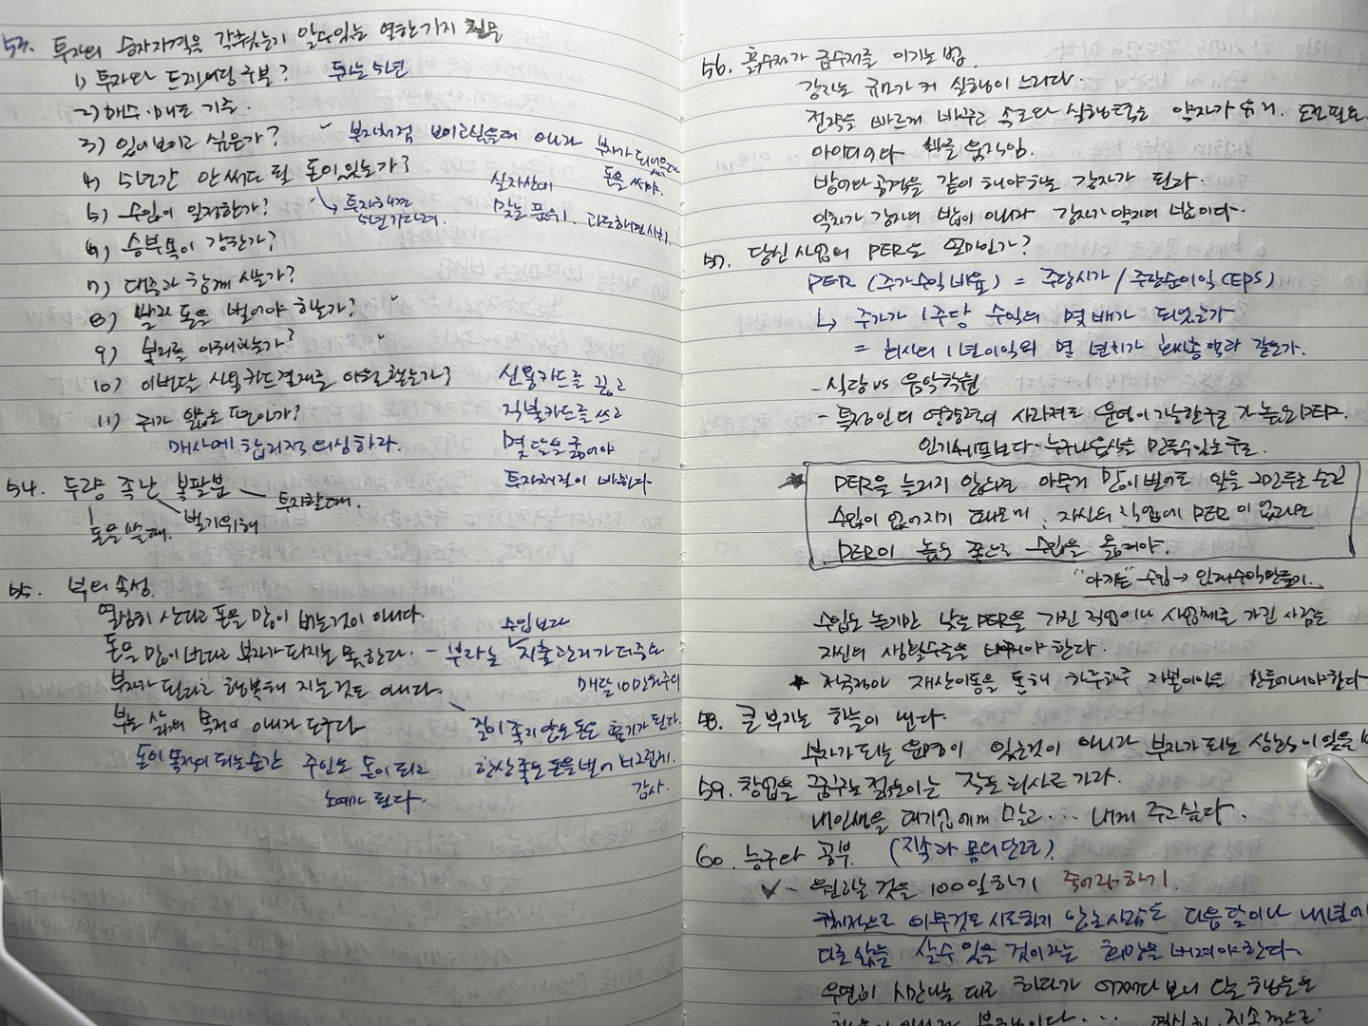 53. 투자의 승자 자격을 갖췄는지 알수있는 열한가지 질문
1) 투자와 트레이딩 구분? 투자는 5년
2) 매수·매도 기술.
3) 있어보이고 싶은가? - 부자처럼 보이고 싶을때 아니라 부자가 되었을때 돈을 써야.
4) 5년간 안써도 될 돈이 있는가?
↳ 투자하면 5년 기다려.
실자산에 맞는 품위. 과도하면 사치.
5) 수입이 일정한가?
6) 승부욕이 강한가?
7) 대중과 함께 사는가?
8) 빨리 돈을 벌어야 하는가?
9) 복리를 이해하는가?
10) 이번달 신용카드결제를 하는가? 신용카드를 끊고
11) 귀가 얇은 편인가? 직불카드를 쓰고
매사에 합리적 의심하라. 몇 달은 굶어야
투자체질이 변한다.
54. 두량 족난 복팔분 - 투자할때.
돈을 쓸때. 벌기위해
55. 부의 속성
열심히 산다고 돈을 많이 버는것이 아니다.
돈을 많이 번다고 부자가 되지는 못한다. - 부자는 수입보다 지출관리가 더중요
부자가 된다고 행복해 지는것도 아니다. 매달 10만원 주의
부는 삶의 목적이 아니라 도구다
질이 좋지 않은 돈은 흉기가 된다.
돈이 목적이 되는순간 주인은 돈이 되고 항상 좋은 돈을 벌어
노예가 된다. 감사.
56. 흙수저가 금수저를 이기는 법.
강자는 규모가 커 실행이 느리다.
전략을 빠르게 바꾸고 속도와 실행력은 약자가 유리. 도전필요
아이디어와 움직임.
방어와 공격을 같이 해야하는 강자가 된다.
약자가 강자의 밥이 아니라 강자가 약자의 밥이다.
57. 당신 사업의 PER는 얼마인가?
PER (주가수익비율) = 주당시가 / 주당순이익 (EPS)
↳ 주가가 1주당 수익의 몇 배가 되었는가
= 회사의 1년이익의 몇 년치가 회사총액과 같은가.
- 식당 vs 음악학원
- 특정인의 영향력이 사라져도 운영이 가능한구조가 높은 PER.
인기셰프보다 누구나 음식을 만들수있는 구조
★ PER을 늘리지 않으면 아무리 많이 벌어도 일을 그만두는 순간
수입이 없어지기 때문에, 자신의 직업에 PER이 없다면
PER이 높은 쪽으로 수입을 옮겨야.
수입 →
수입은 높지만 낮은 PER을 가진 직업이나 사업체를 가진 사람은
자신의 생활수준을 해야 한다.
★ 적극적인 재산이동을 통해 하루하루 자본이익을 만들어내야한다
58. 큰 부자는 하늘이 낸다.
부자가 되는 운명이 있는것이 아니라 부자가 되는 상황이 있을
59. 창업을 꿈꾸는 젊은이는 작은 회사로 가라.
내인생을 대기업에게 말고... 내게 주고싶다.
60. 능구와 공부. (지속과 몸의단련).
✓ - 원하는 것을 100일하기 죽어라하기.
아무것도 시도하지 않는 사람은 다음달이나 내년에
다른 삶을 살수있을 것이라는 희망을 버려야한다.
우연히 시간나는 대로 하다가 어쩌다 보니